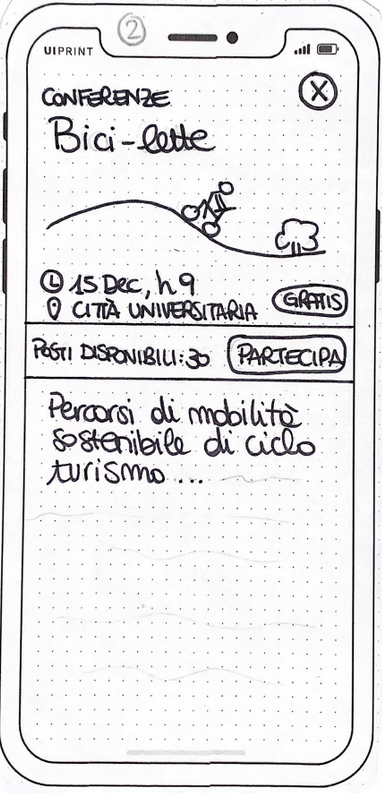 2
UIPRINT
CONFERENZE
X
Bici-lette
15 Dec, h 9
CITTÀ UNIVERSITARIA
GRATIS
POSTI DISPONIBILI: 30
PARTECIPA
Percorsi di mobilità
sostenibile di ciclo
turismo ...